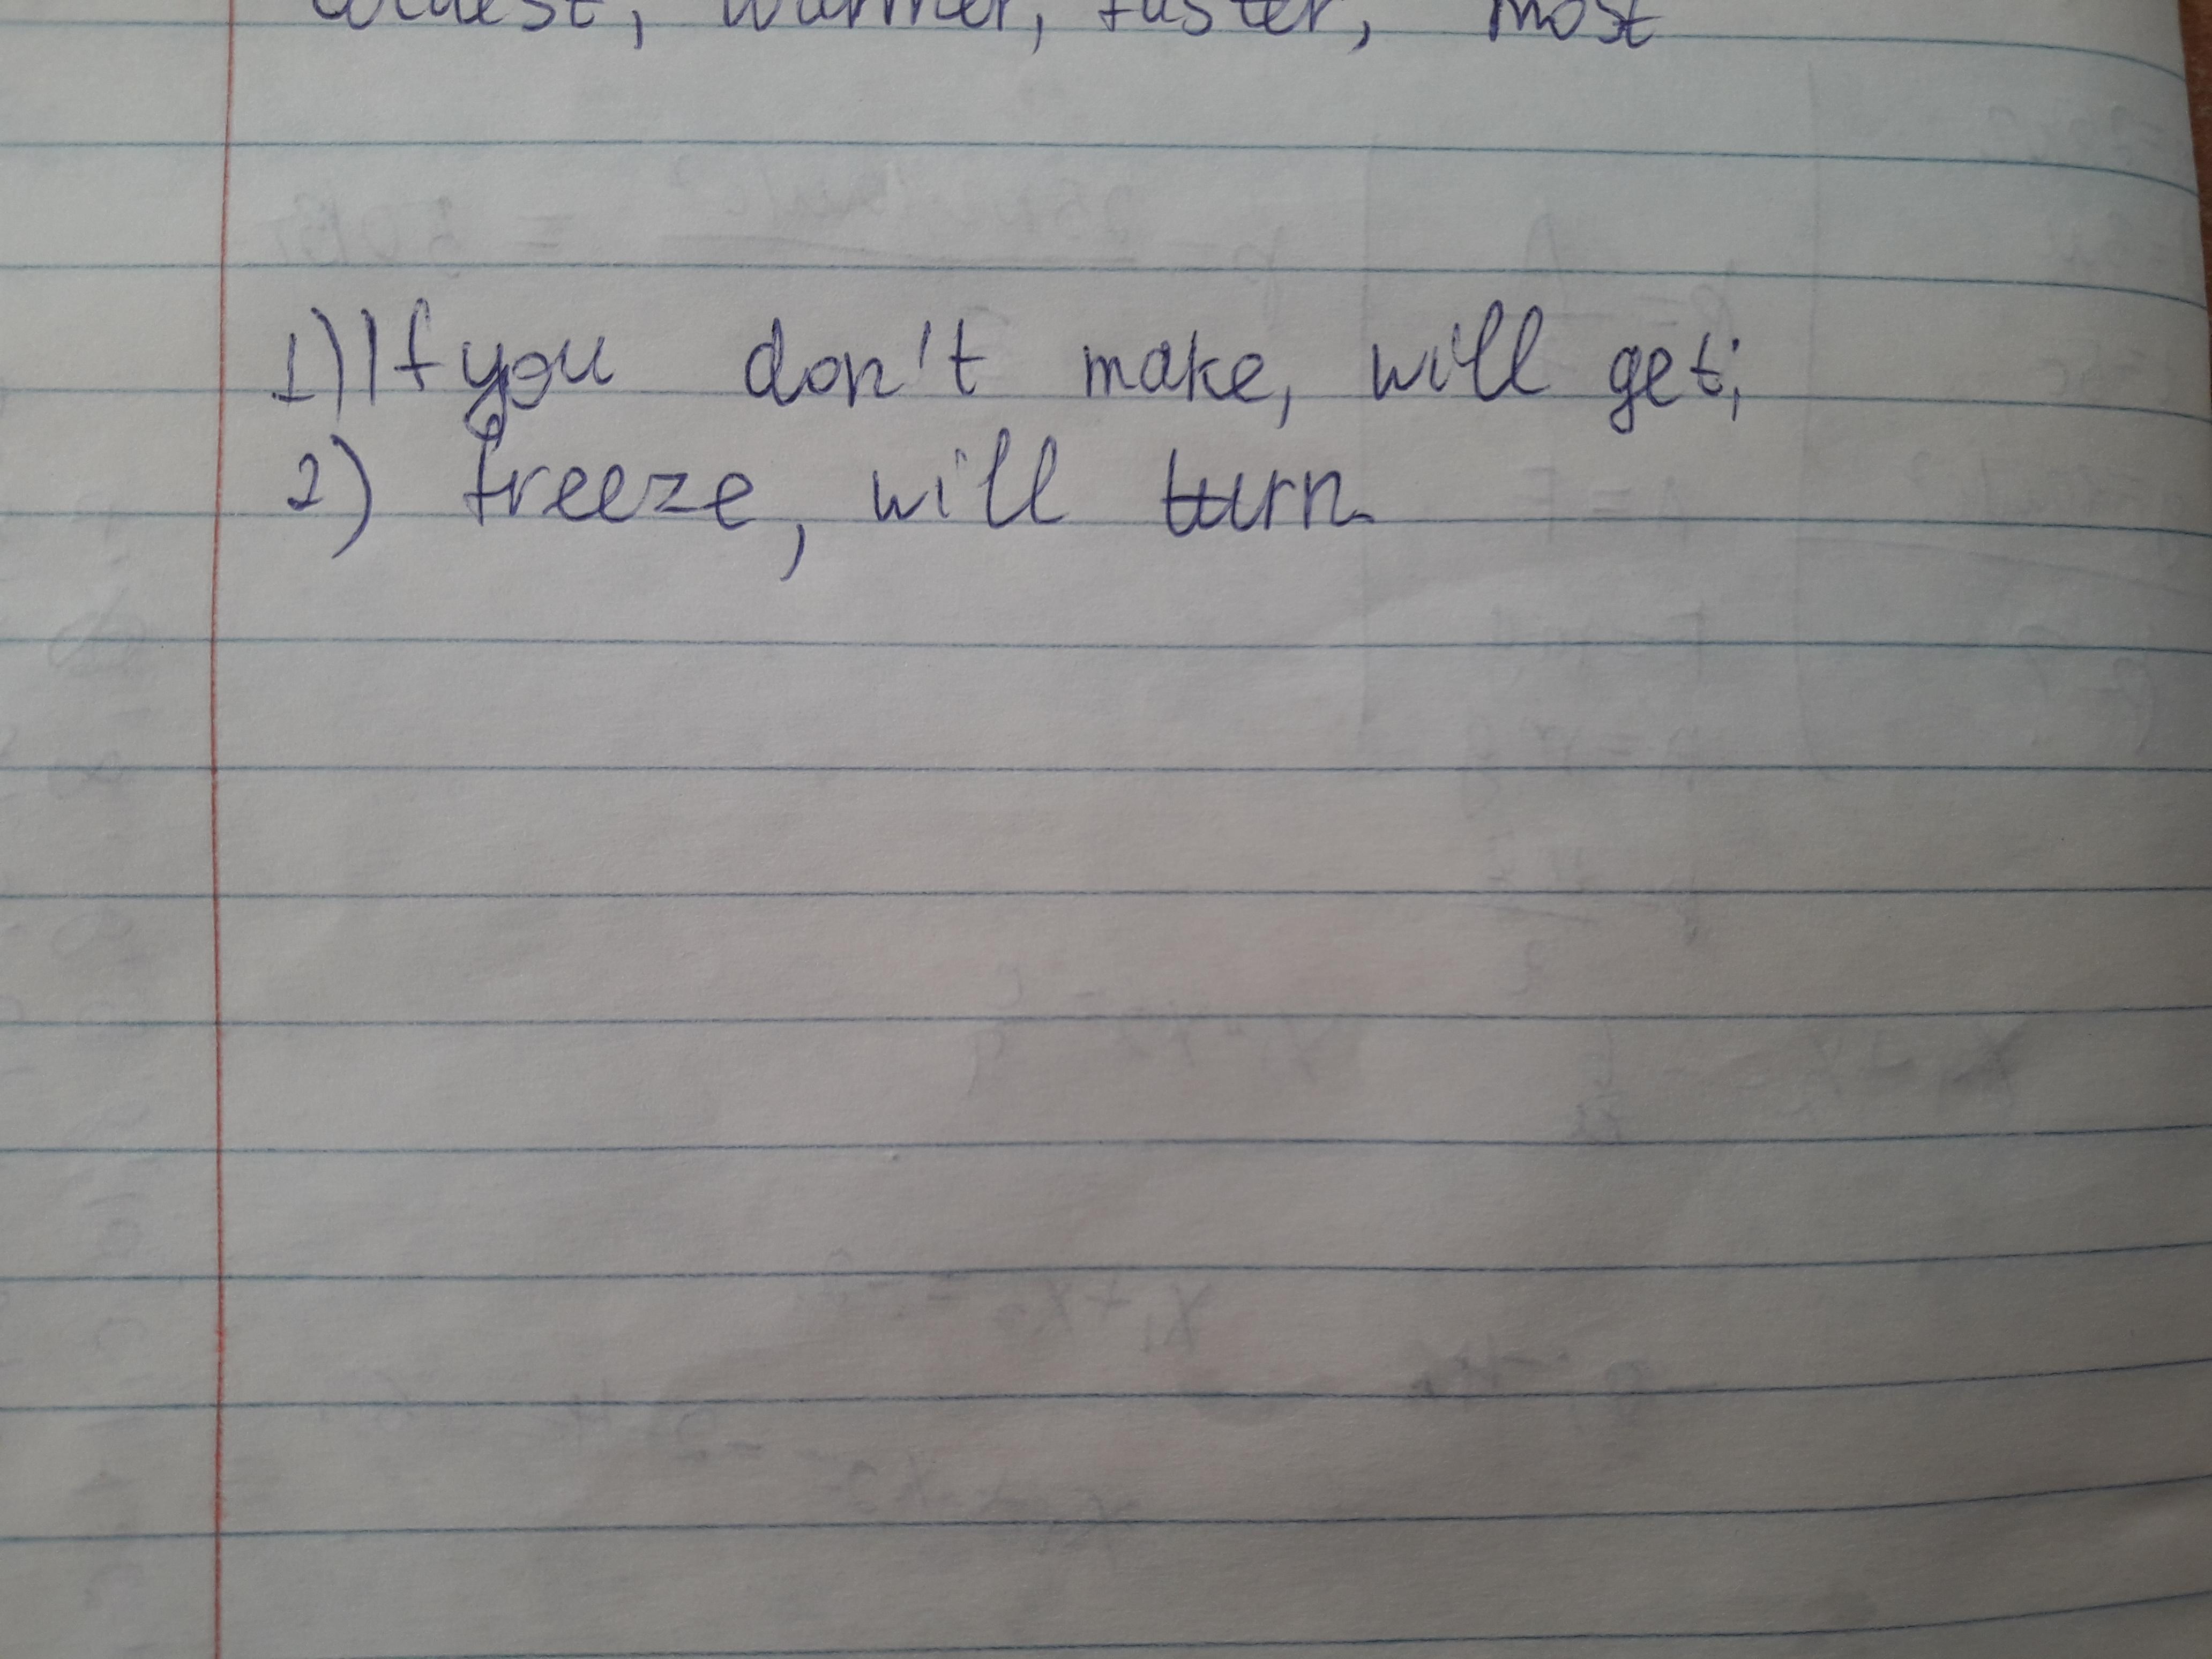 coldest, warmer, faster, most
1) If you don't make, will get;
2) freeze, will turn